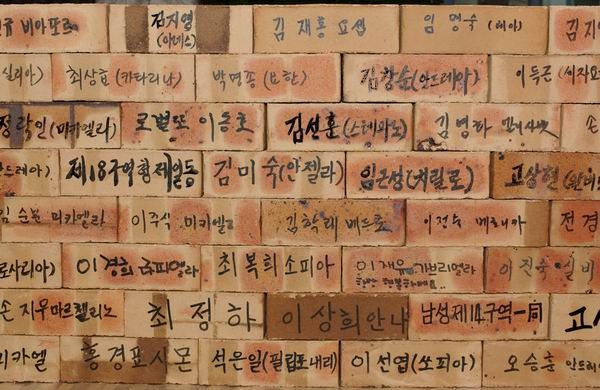 규 비아포르
김지영
(아네스)
김재홍 요셉
임명숙 (데아)
김지
실리아)
최상효 (카타리나)
박명종 (요한)
김창순(안드레아)
이득근
정락인 (미카엘라)
로벨또 이응호
김선훈 (스테파노)
김명하
손
안드레아)
제18구역형제일동
김미숙(안젤라)
임근성(치릴로)
고상현
임순본 미카엘라
이주식 미키엘
김학래 베드로
이건숙 베로니아
전경
로사리아)
이경희 루피엘라
최복희소피아
이재유 가브리엘라
이진숙
손지우마르첼리노
최정하
이상희안나
남성제14구역一同
고
미카엘
홍경표시몬
석은일(필립보내리)
이선엽 (쏘피아)
오승훈 안드레